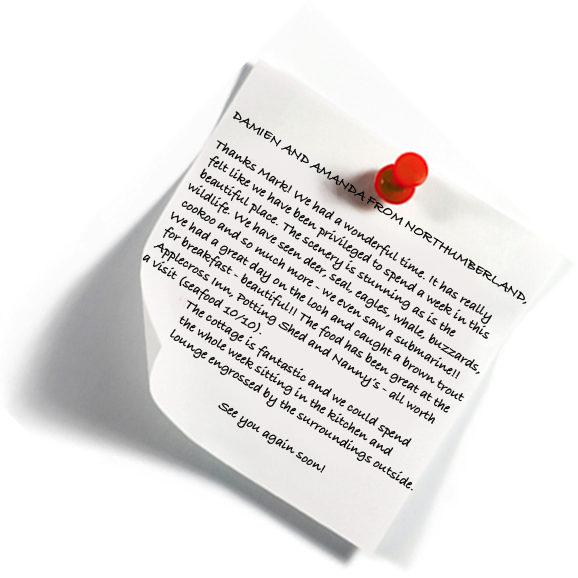 DAMIEN AND AMANDA FROM NORTHUMBERLAND,
Thanks Mark! We had a wonderful time. It has really
felt like we have been privileged to spend a week in this
beautiful place. The scenery is stunning as is the
wildlife. We have seen deer, seal, eagles, whale, buzzards,
cookoo and so much more - we even saw a submarine!!
We had a great day on the loch and caught a brown trout
for breakfast - beautiful!! The food has been great at the
Applecross Inn, Potting Shed and Nanny's - all worth
a visit (seafood 10/10).
The cottage is fantastic and we could spend
the whole week sitting in the kitchen and
lounge engrossed by the surroundings outside.
See you again soon!